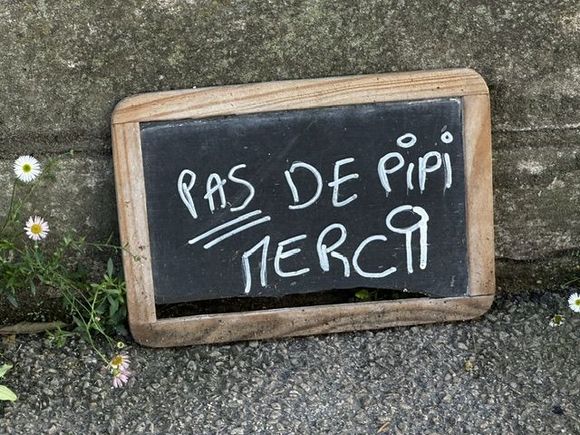 PAS DE PIPI
MERCI